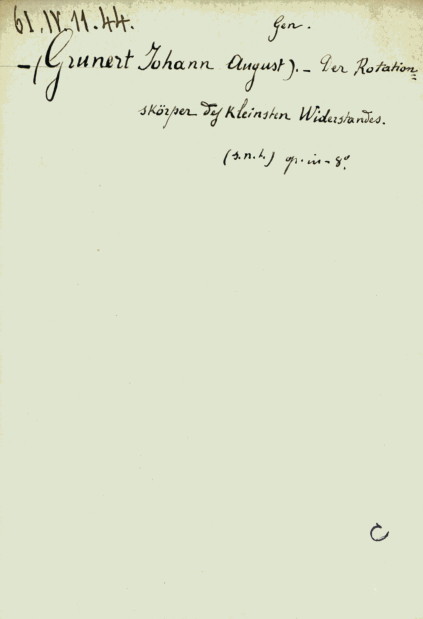 61.IV.11.44.
Gen.
-(Grunert Johann August).- Der Rotation=
skörper des kleinsten Widerstandes.
(s.n.t.) op. in-8º.
C